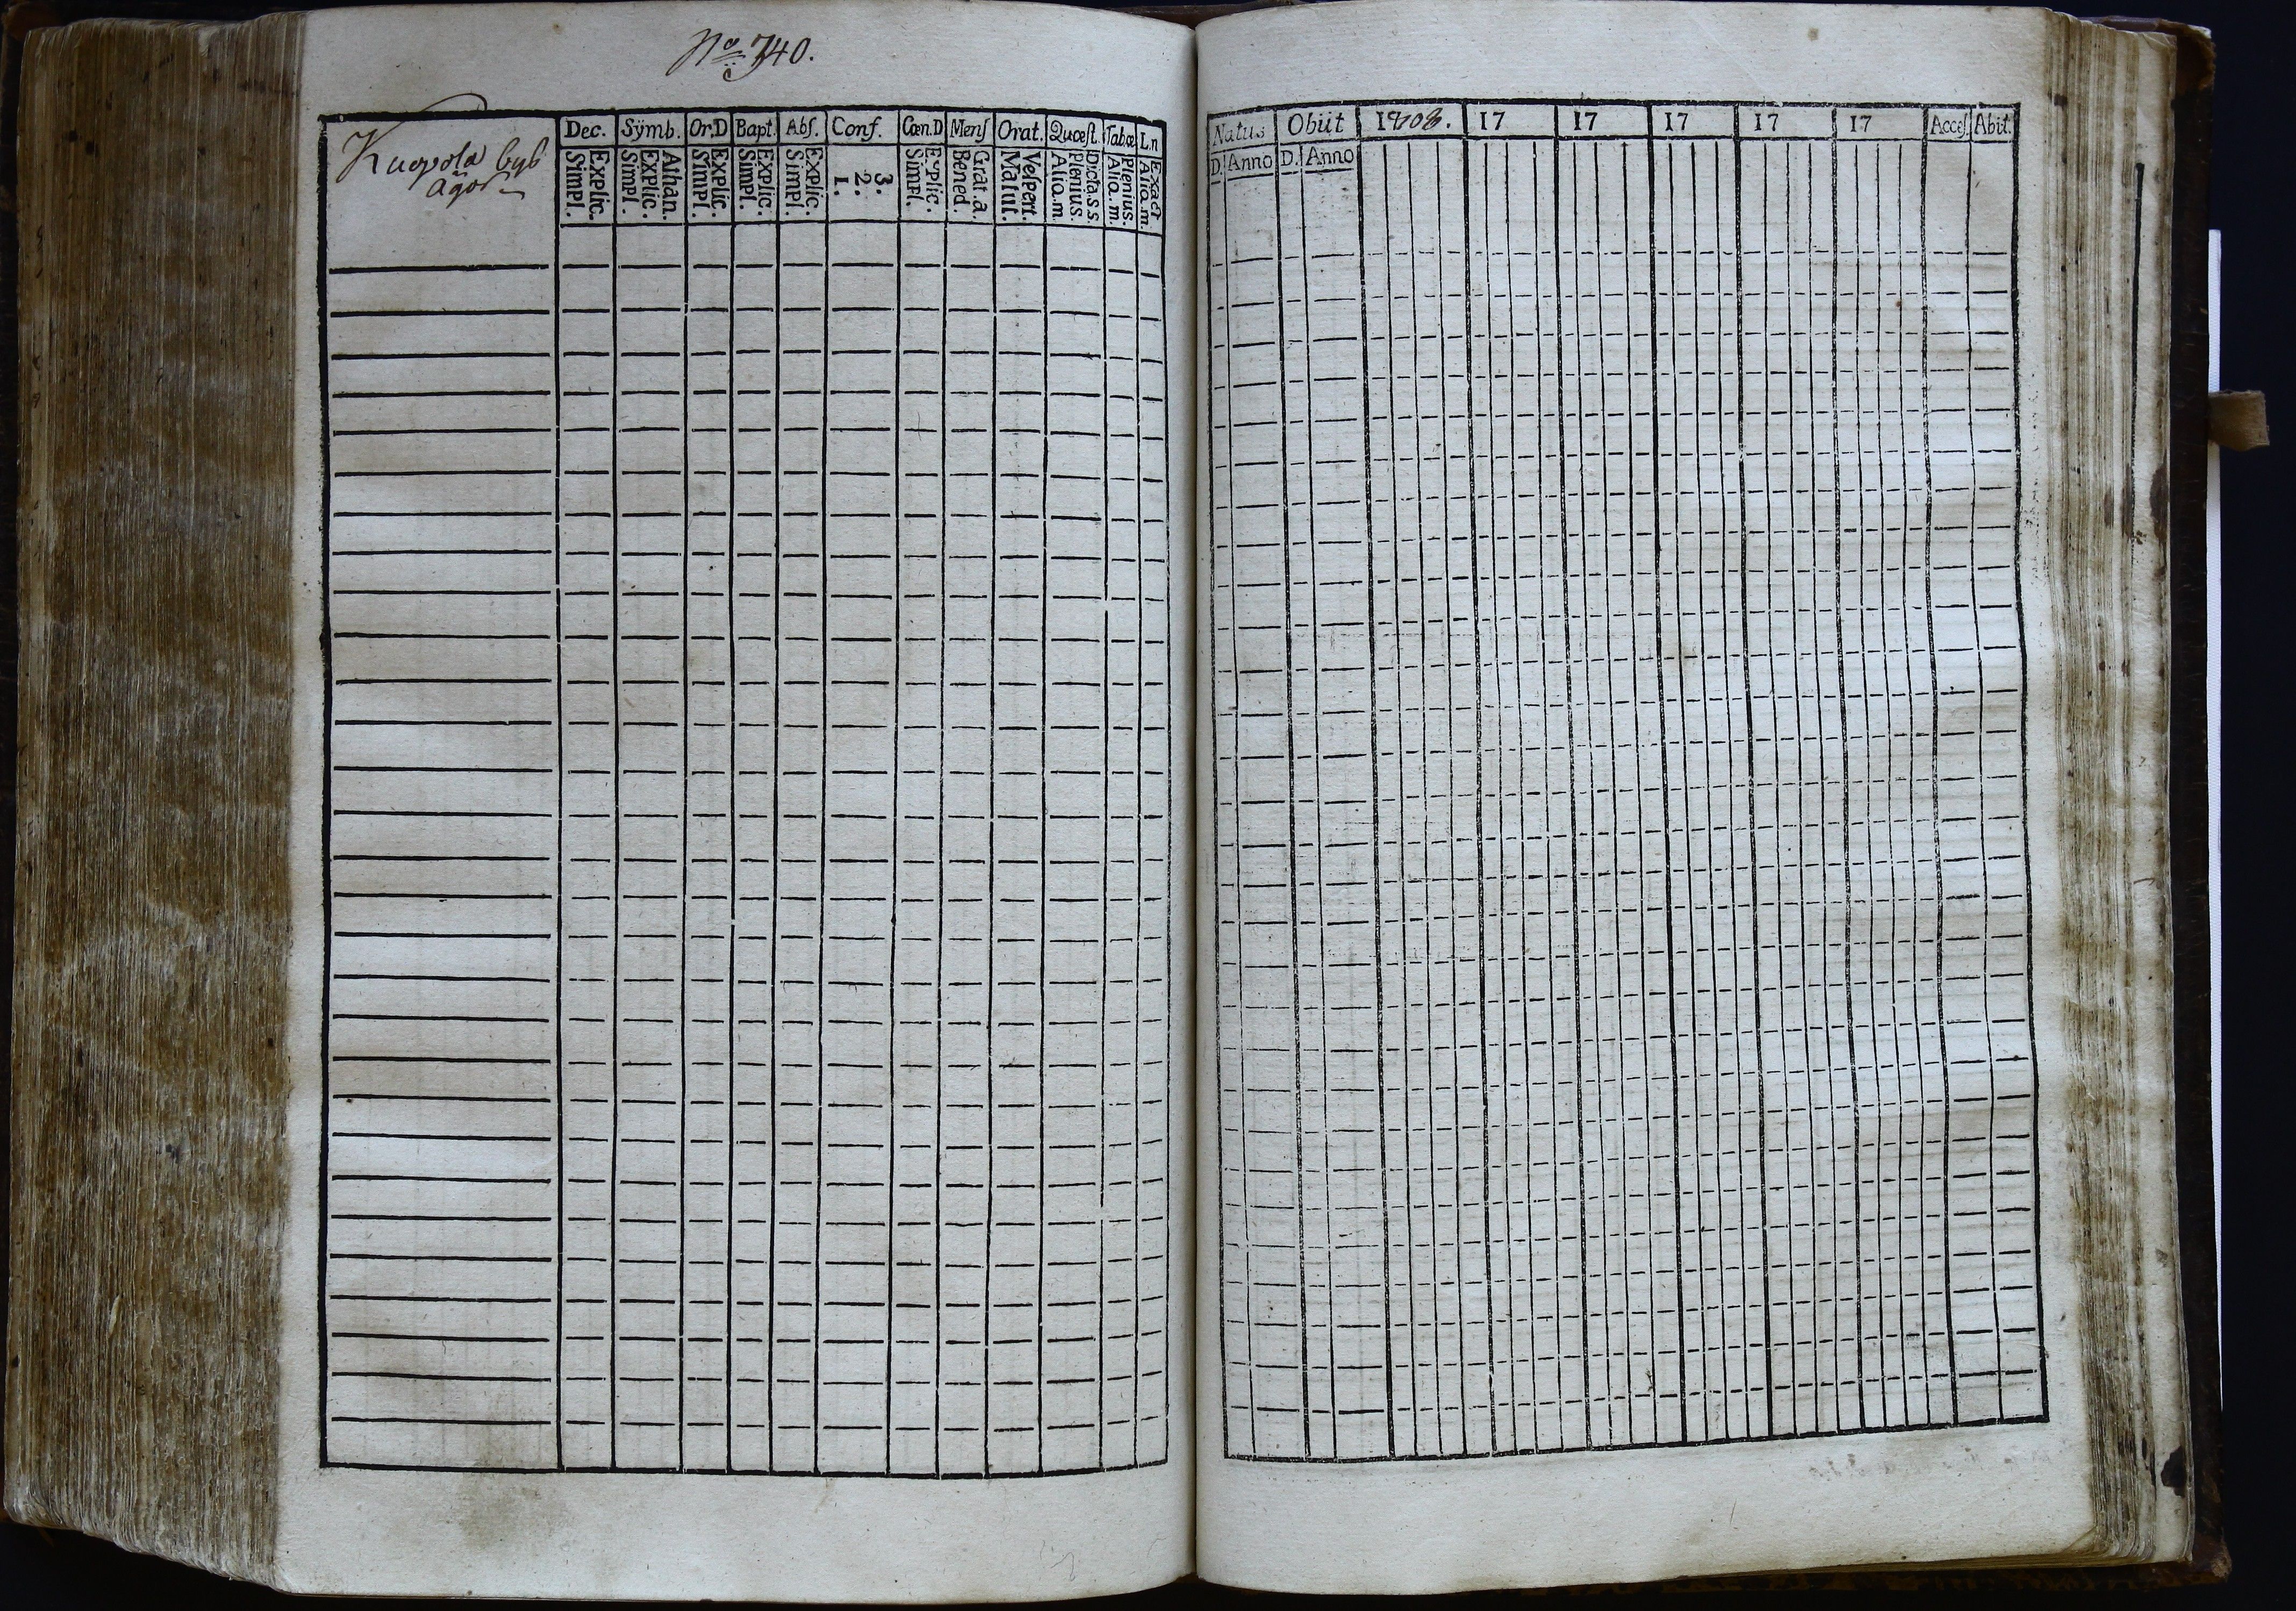 No 740.
Kuopola by§
ägor
Dec. Sÿmb. Or.D Bapt. Abſ. Conf. Cœn.D Menſ Orat. Quœſt. Tab.œ L.n
Explic. Simpl.
Athan. Explic. Simpl.
Explic. Simpl.
Explic. Simpl.
Explic. Simpl.
3. 2. 1.
Explic. Simpl.
Grat.a. Bened.
Veſpert. Matut.
Dicta.s.s. Plenius. Alia.m
Plenius. Alia.m.
Exact Alia.m.
Natus Obiit 1808. 17 17 17 17 17 Acceſ. Abit.
D. Anno D. Anno